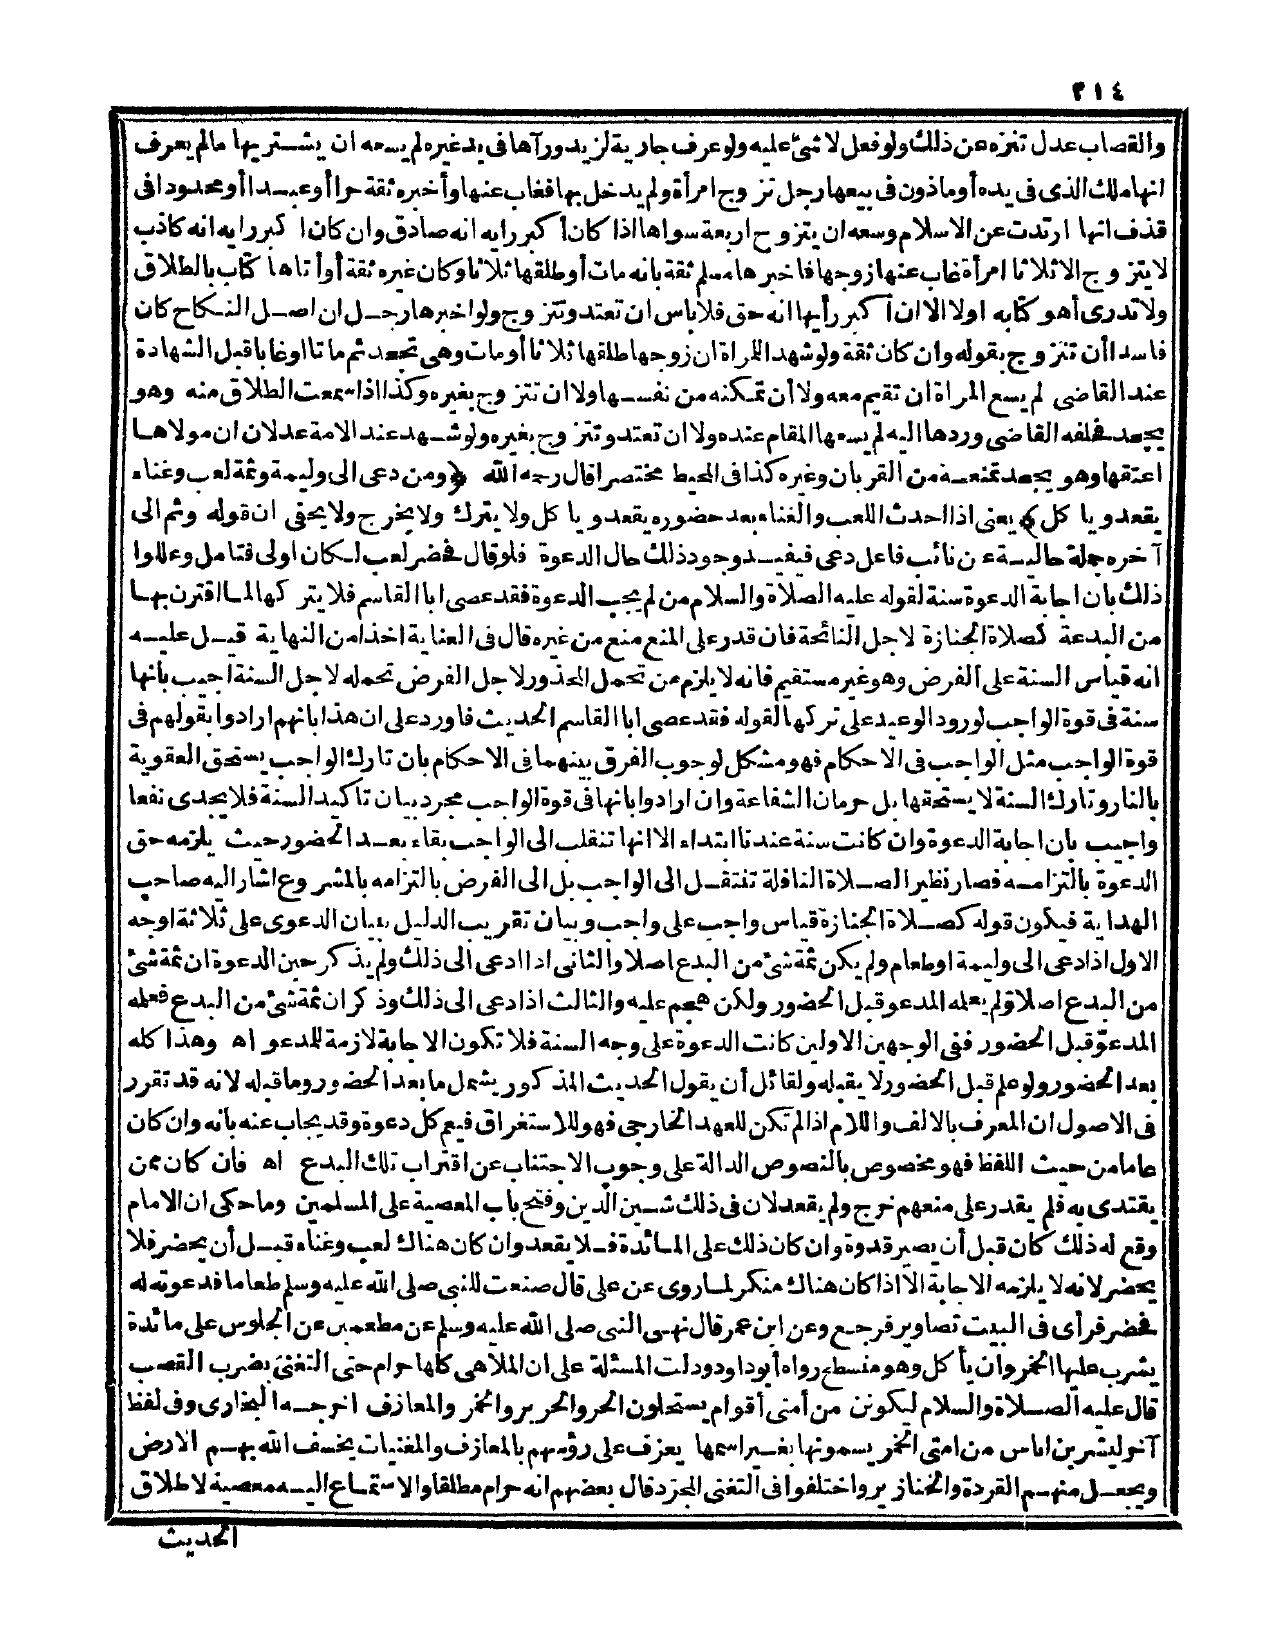 ٢١٤
والقصاب عدل تنزه عن ذلك ولو فعل لا شئ عليه ولو عرف جارية لزيد ورآها فى يد غيره لم يسعه ان يشتريها مالم يعرف
انها ملك الذى فى يده أو ماذون فى بيعها رجل تزوج امرأة ولم يدخل بها فغاب عنها وأخبره ثقة حرا أو عبدا أو محدودا فى
قذف انها ارتدت عن الاسلام وسعه ان يتزوج اربعة سواها اذا كان أكبر رايه انه صادق وان كان اكبر رايه انه كاذب
لا يتزوج الا ثلاثا امرأة غاب عنها زوجها فاخبرها مسلم ثقة بانه مات أو طلقها ثلاثا وكان غيره ثقة أو أتاها كتاب بالطلاق
ولا تدرى أهو كتابه اولا الا ان أكبر رأيها انه حق فلا باس ان تعتد وتتزوج ولو اخبرها رجل ان اصل النكاح كان
فاسدا أن تتزوج بقوله وان كان ثقة ولو شهد اللمراة ان زوجها طلقها ثلاثا أو مات وهى تجحد ثم ماتا اوغابا قبل الشهادة
عند القاضى لم يسع المراة ان تقيم معه ولا أن تمكنه من نفسها ولا ان تتزوج بغيره وكذا اذا سمعت الطلاق منه وهو
يجحد فحلفه القاضى وردها اليه لم يسعها المقام عنده ولا ان تعتد وتتزوج بغيره ولو شهد عند الامة عدلان ان مولاها
اعتقها وهو يجحد تمنعه من القربان وغيره كذا فى المحيط مختصرا قال رحمه الله ﴿ومن دعى الى وليمة وثمة لعب وغناء
يقعد ويا كل﴾ يعنى اذا احدث اللعب والغناء بعد حضوره يقعد ويا كل ولا يترك ولا يخرج ولا يخفى ان قوله وثم الى
آخره جملة حالية عن نائب فاعل دعى فيفيد وجود ذلك حال الدعوة فلو قال فحضر لعب لكان اولى فتامل وعللوا
ذلك بان اجابة الدعوة سنة لقوله عليه الصلاة والسلام من لم يجب الدعوة فقد عصى ابا القاسم فلا يتركها لما اقترن بها
من البدعة كصلاة الجنازة لاجل النائحة فان قدر على المنع منع من غيره قال فى العناية اخذا من النهاية قيل عليه
انه قياس السنة على الفرض وهو غير مستقيم فانه لا يلزم من تحمل المحذور لاجل الفرض تحمله لاجل السنة اجيب بأنها
سنة فى قوة الواجب لورود الوعيد على تركها لقوله فقد عصى ابا القاسم الحديث فاورد على ان هذا بانهم ارادوا بقولهم فى
قوة الواجب مثل الواجب فى الاحكام فهو مشكل لوجوب الفرق بينهما فى الاحكام بان تارك الواجب يستحق العقوبة
بالنار وتارك السنة لا يستحقها بل حرمان الشفاعة وان ارادوا بانها فى قوة الواجب مجرد بيان تاكيد السنة فلا يجدى نفعا
واجيب بان اجابة الدعوة وان كانت سنة عندنا ابتداء الا انها تنقلب الى الواجب بقاء بعد الحضور حيث يلزمه حق
الدعوة بالتزامه فصار نظير الصلاة النافلة تنتقل الى الواجب بل الى الفرض بالتزامه بالمشروع اشار اليه صاحب
الهداية فيكون قوله كصلاة الجنازة قياس واجب على واجب وبيان تقريب الدليل بيان الدعوى على ثلاثة اوجه
الاول اذا دعى الى وليمة او طعام ولم يكن ثمة شئ من البدع اصلا والثانى اذا ادعى الى ذلك ولم يذكر حين الدعوة ان ثمة شئ
من البدع اصلا ولم يعلمه المدعو قبل الحضور ولكن هجم عليه والثالث اذا دعى الى ذلك وذكر ان ثمة شئ من البدع فعلمه
المدعو قبل الحضور ففى الوجهين الاولين كانت الدعوة على وجه السنة فلا تكون الاجابة لازمة للمدعو اه وهذا كله
بعد الحضور ولو علم قبل الحضور لا يقبله ولقائل أن يقول الحديث المذكور يشمل ما بعد الحضور وما قبله لانه قد تقرر
فى الاصول ان المعرف بالالف واللام اذا لم تكن للعهد الخارجى فهو للاستغراق فيعم كل دعوة وقد يجاب عنه بانه وان كان
عاما من حيث اللفظ فهو مخصوص بالنصوص الدالة على وجوب الاجتناب عن اقتراب تلك البدع اه فان كان ممن
يقتدى به فلم يقدر على منعهم خرج ولم يقعد لان فى ذلك شين الدين وفتح باب المعصية على المسلمين وما حكى ان الامام
وقع له ذلك كان قبل أن يصير قدوة وان كان ذلك على المائدة فلا يقعد وان كان هناك لعب وغناء قبل أن يحضر فلا
يحضر لانه لا يلزمه الاجابة الا اذا كان هناك منكر لما روى عن على قال صنعت للنبى صلى الله عليه وسلم طعاما فدعوته له
فحضر فرأى فى البيت تصاوير فرجع وعن ابن عمر قال نهى النبى صلى الله عليه وسلم عن مطعمين عن الجلوس على مائدة
يشرب عليها الخمر وان يأكل وهو منسطح رواه أبو داود ودلت المسئلة على ان الملاهى كلها حرام حتى التغنى بضرب القصب
قال عليه الصلاة والسلام ليكونن من أمتى أقوام يستحلون الحر والحرير والخمر والمعازف اخرجه البخارى وفى لفظ
آخر ليشربن اناس من امتى الخمر يسمونها بغير اسمها يعزف على رؤسهم بالمعازف والمغنيات يخسف الله بهم الارض
ويجعل منهم القردة والخنازير واختلفوا فى التغنى المجرد قال بعضهم انه حرام مطلقا والاستماع اليه معصية لاطلاق
الحديث